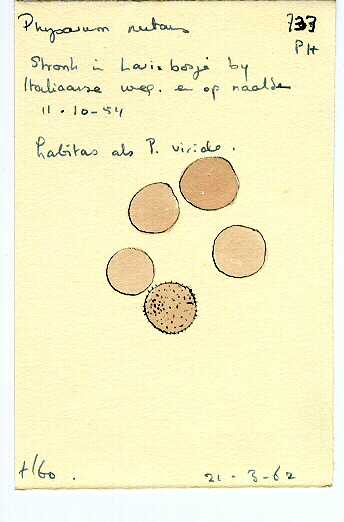 Physarum nutans 733
PH
Stronk in Larixbosje by
Italiaanse weg. en op naalden
11-10-54
habitus als P. viride.
21-3-62